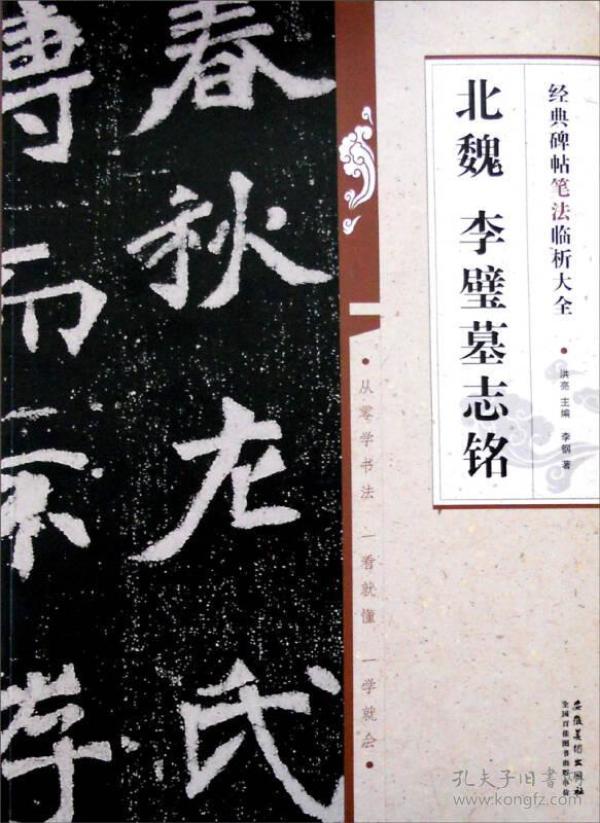 经典碑帖笔法临析大全
北魏 李璧墓志铭
洪亮 主编 李钢 著
春秋左氏
傳而不存
从零学书法 一看就懂 一学就会
安徽美术出版社
全国百佳图书出版单位
孔夫子旧书网
www.kongfz.com